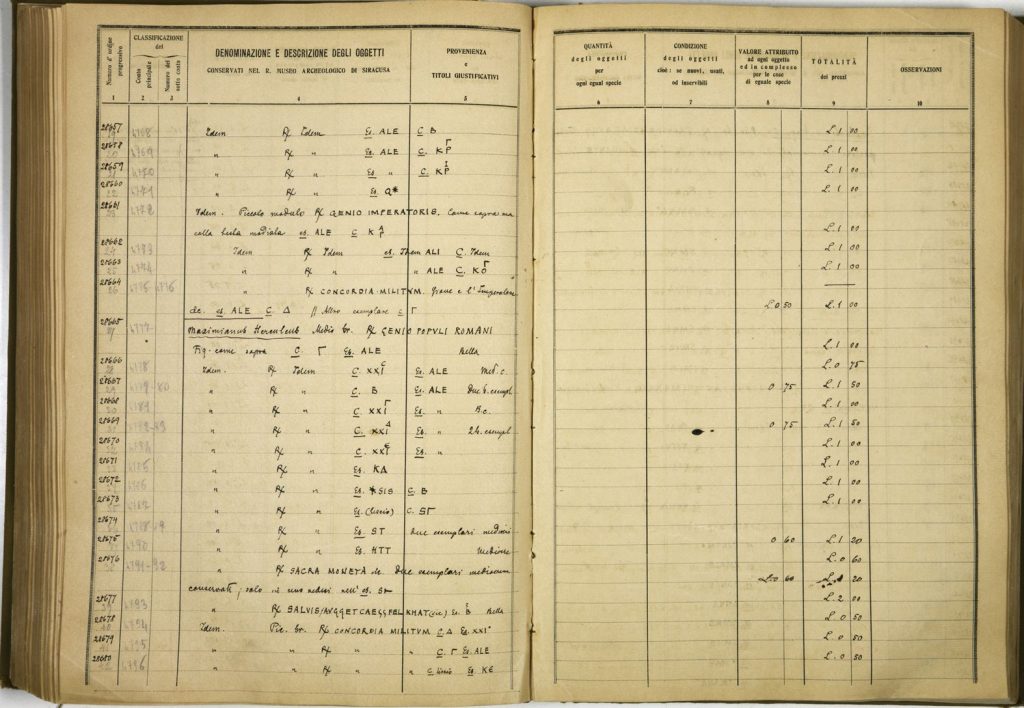 Numero d'ordine progressivo
CLASSIFICAZIONE del
Conto principale
Numero del sotto conto
DENOMINAZIONE E DESCRIZIONE DEGLI OGGETTI
CONSERVATI NEL R. MUSEO ARCHEOLOGICO DI SIRACUSA
PROVENIENZA
e
TITOLI GIUSTIFICATIVI
QUANTITÀ
degli oggetti
per
ogni egual specie
CONDIZIONE
degli oggetti
cioè: se nuovi, usati,
od inservibili
VALORE ATTRIBUITO
ad ogni oggetto
ed in complesso
per le cose
di eguale specie
TOTALITÀ
dei prezzi
OSSERVAZIONI
1 2 3 4 5 6 7 8 9 10
28657 Idem ℞ Idem Es. ALE C B L. 1 00
28658 " ℞ " Es. ALE C. K Γ P L. 1 00
28659 " ℞ " Es. " C. K P L. 1 00
28660 " ℞ " Es. Q* L. 1 00
28661 Idem. Piccolo modulo ℞ GENIO IMPERATORIS. Come sopra ma
colla testa radiata es. ALE C K L. 1 00
28662 Idem ℞ Idem es. Idem ALI C. Idem L. 1 00
28663 " ℞ " " ALE C. KO L. 1 00
28664 " ℞ CONCORDIA MILITVM. Giove e l'Imperatore
etc. es. ALE C. Δ // Altro esemplare c Γ L. 0 50 L. 1 00
28665 Maximianus Herculeus Medio br. ℞ GENIO POPVLI ROMANI
Fig. come sopra C. Γ Es. ALE Bella L. 1 00
28666 Idem. ℞ Idem C. XXI Es. ALE Med. c. L. 0 75
28667 " ℞ " C. B Es. ALE Due b. esempl 0 75 L. 1 50
28668 " ℞ " C. XXI Γ Es. " B.c. L. 1 00
28669 " ℞ " C. XXI Δ Es. " 2 b. esempl 0 75 L. 1 50
28670 " ℞ " C. XXI Є Es. " L. 1 00
28671 " ℞ " Es. KΔ L. 1 00
28672 " ℞ " Es. *SIS C. B L. 1 00
28673 " ℞ " Es. (liscio) C. SΓ L. 1 00
28674 " ℞ " Es. ST Due esemplari mediocri 0 60 L. 1 20
28675 " ℞ " Es. HTT Mediocre L. 0 60
28676 " ℞ SACRA MONETA etc Due esemplari mediocrem.
conservati, solo in uno vedesi nell'es. ST L. 0 60 L. 1 20
28677 " ℞ SALVIS AVGGETCAESSFELKHAT (sic) Es. B Bella L. 2 00
28678 Idem. Pic. br. ℞ CONCORDIA MILITVM C. Δ Es. XXI L. 0 50
28679 " " ℞ " " C. Γ Es. ALE L. 0 50
28680 " " ℞ " " C liscio Es. KЄ L. 0 50